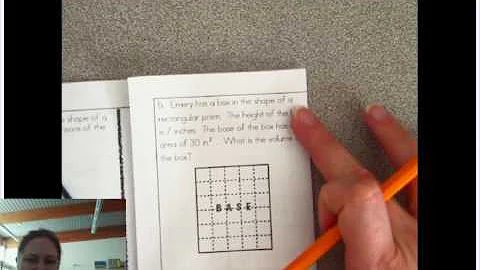 e shape of a
area of the
5. Emery has a box in the shape of a
rectangular prism. The height of the
is 7 inches. The base of the box has
area of 30 in². What is the volume
the box?
BASE